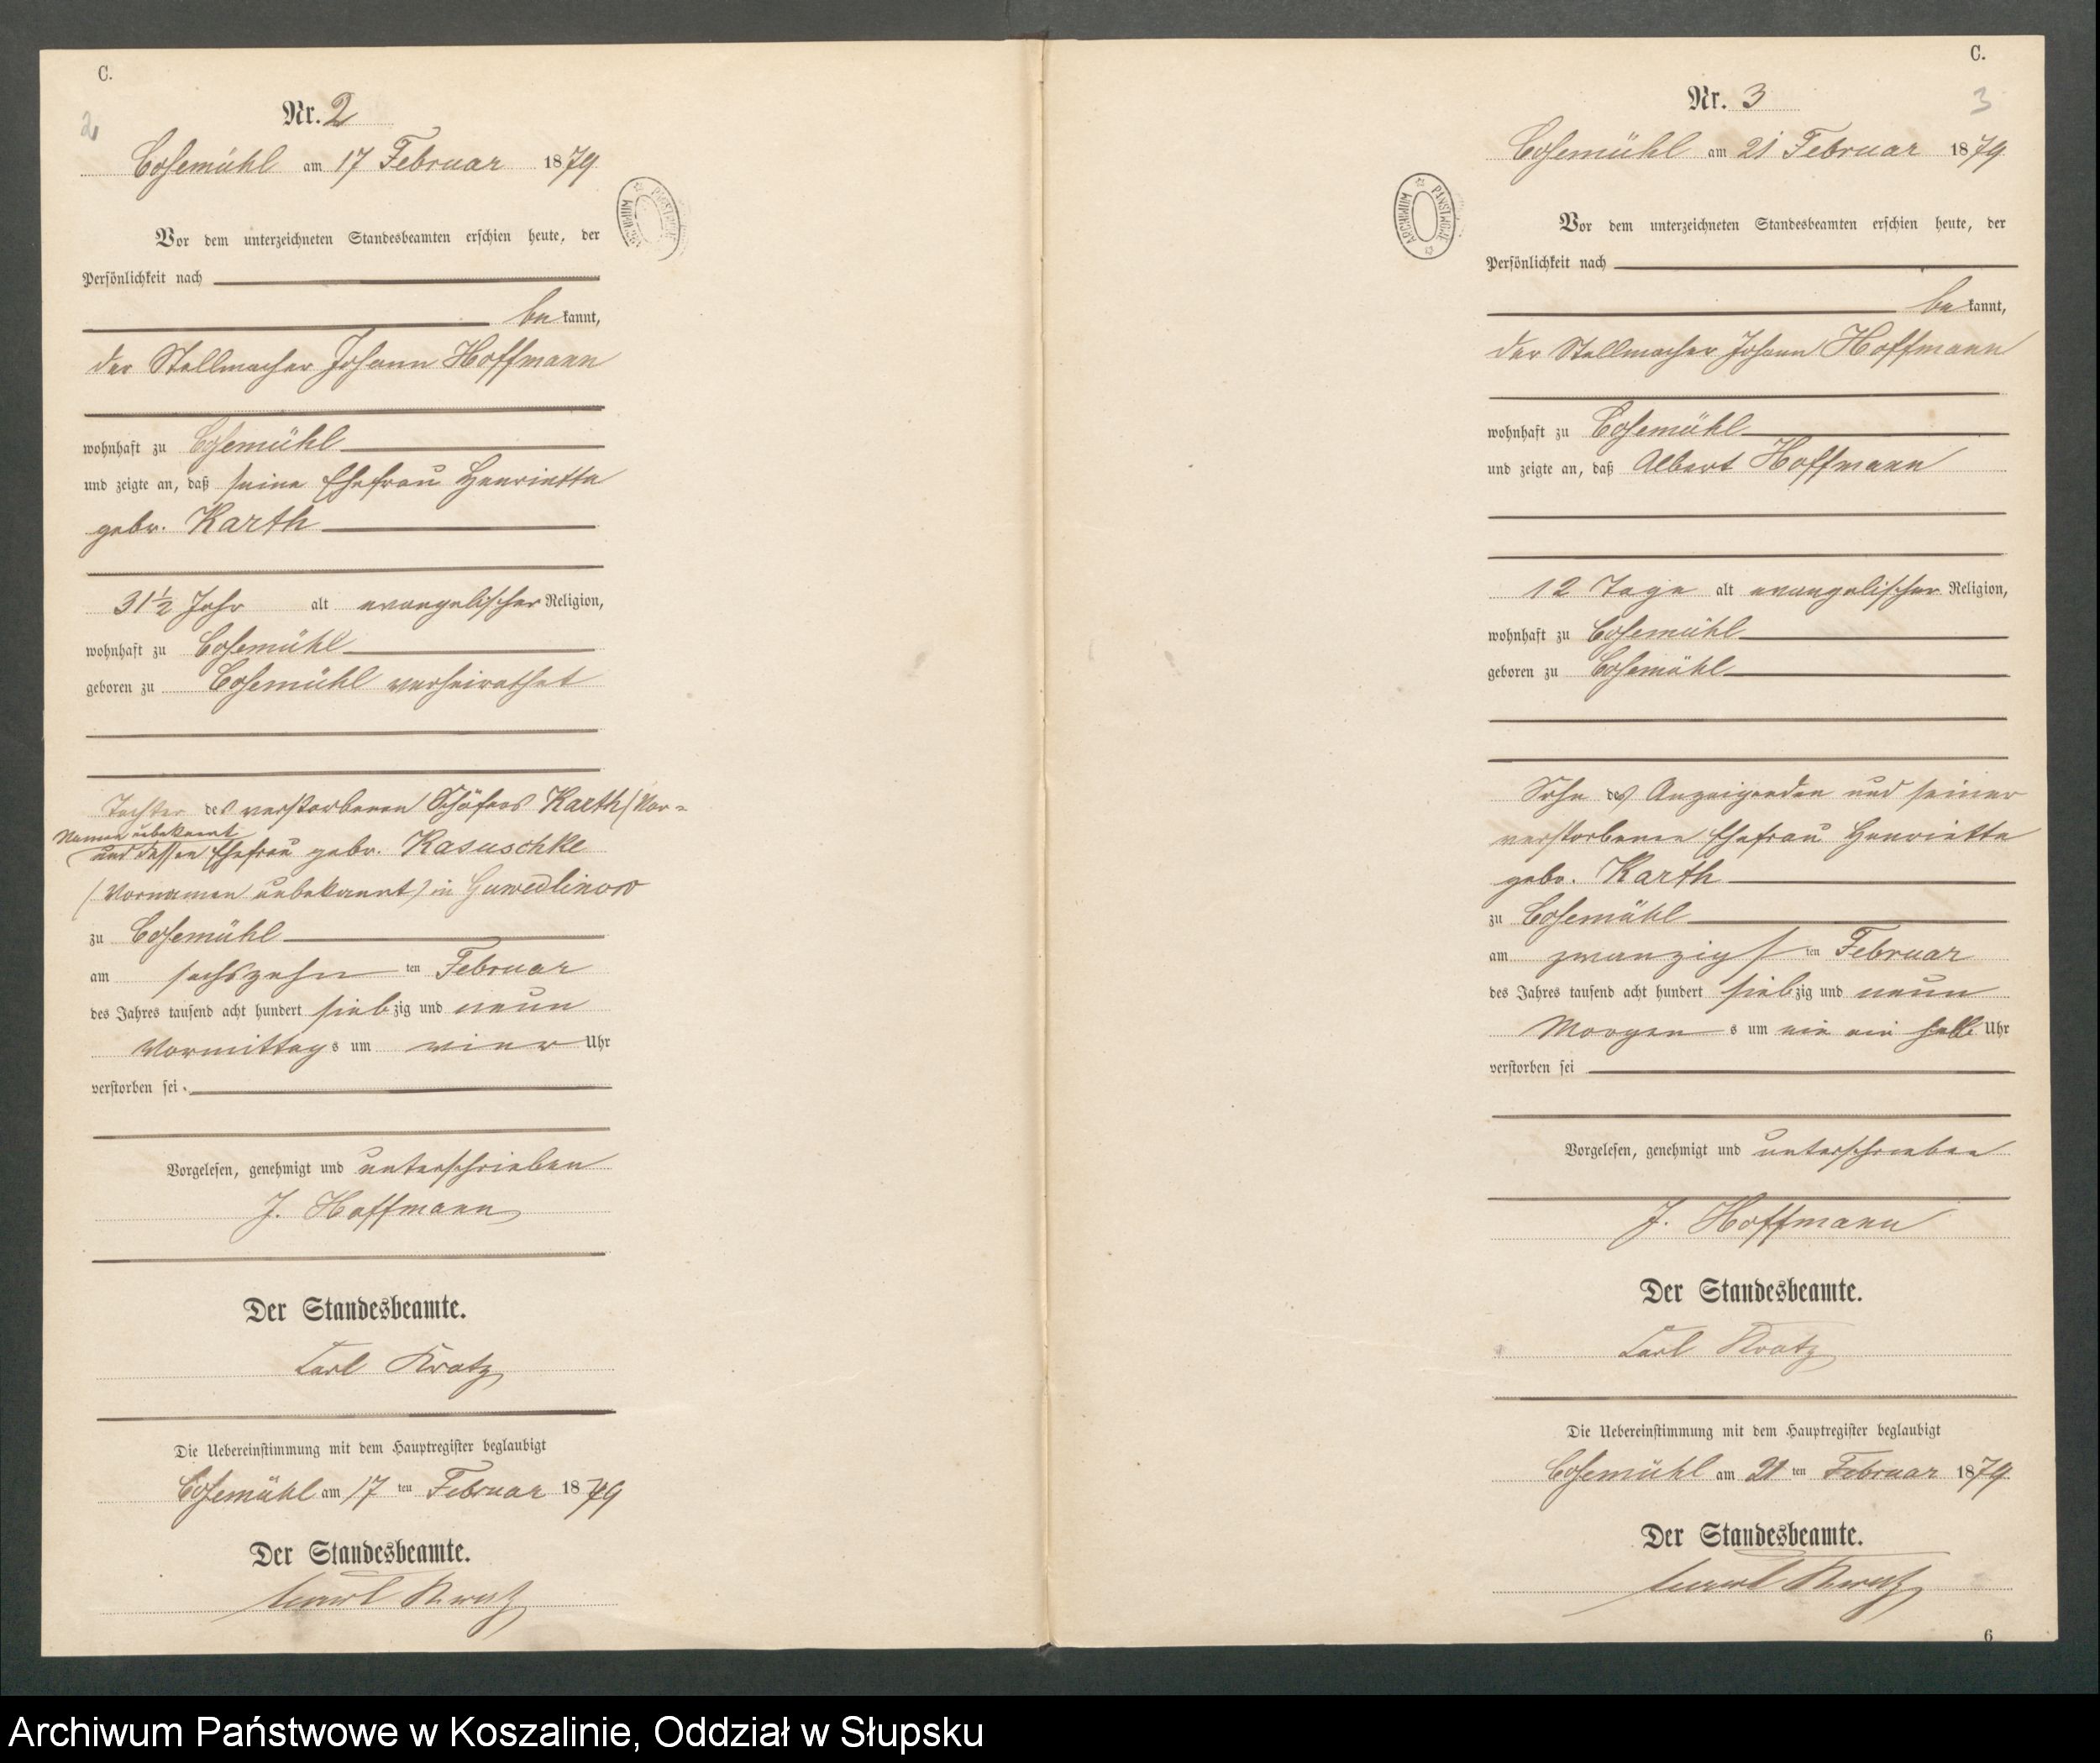 C.
2
Nr. 2
Cosemühl am 17 Februar 1879
Vor dem unterzeichneten Standesbeamten erschien heute, der
Persönlichkeit nach
be kannt,
der Stellmacher Johann Hoffmann
wohnhaft zu Cosemühl
und zeigte an, daß seine Ehefrau Henriette
gebr. Karth
31½ Jahr alt evangelischer Religion,
wohnhaft zu Cosemühl
geboren zu Cosemühl verheirathet
Tochter des verstorbenen Schäfers Karth (Vor=
Namen unbekannt
und dessen Ehefrau gebr. Kasuschke
(Vornamen unbekannt) in
zu Cosemühl
am sechszehn ten Februar
des Jahres tausend acht hundert siebzig und neun
Vormittags um vier Uhr
verstorben sei.
Vorgelesen, genehmigt und unterschrieben
J. Hoffmann
Der Standesbeamte.
Carl Kratz
Die Uebereinstimmung mit dem Hauptregister beglaubigt
Cosemühl am 17 ten Februar 1879
Der Standesbeamte.
Kratz
ARCHIWUM PAŃSTWOWE
C.
3
Nr. 3
Cosemühl am 21 Februar 1879
ARCHIWUM PAŃSTWOWE
Vor dem unterzeichneten Standesbeamten erschien heute, der
Persönlichkeit nach
be kannt,
der Stellmacher Johann Hoffmann
wohnhaft zu Cosemühl
und zeigte an, daß Albert Hoffmann
12 Tage alt evangelischer Religion,
wohnhaft zu Cosemühl
geboren zu Cosemühl
Sohn des Anzeigenden und seiner
verstorbenen Ehefrau Henriette
gebr. Karth
zu Cosemühl
am zwanzigsten Februar
des Jahres tausend acht hundert siebzig und neun
Morgens um ein ein halb Uhr
verstorben sei
Vorgelesen, genehmigt und unterschrieben
J. Hoffmann
Der Standesbeamte.
Carl Kratz
Die Uebereinstimmung mit dem Hauptregister beglaubigt
Cosemühl am 21 ten Februar 1879.
Der Standesbeamte.
Kratz
6
Archiwum Państwowe w Koszalinie, Oddział w Słupsku